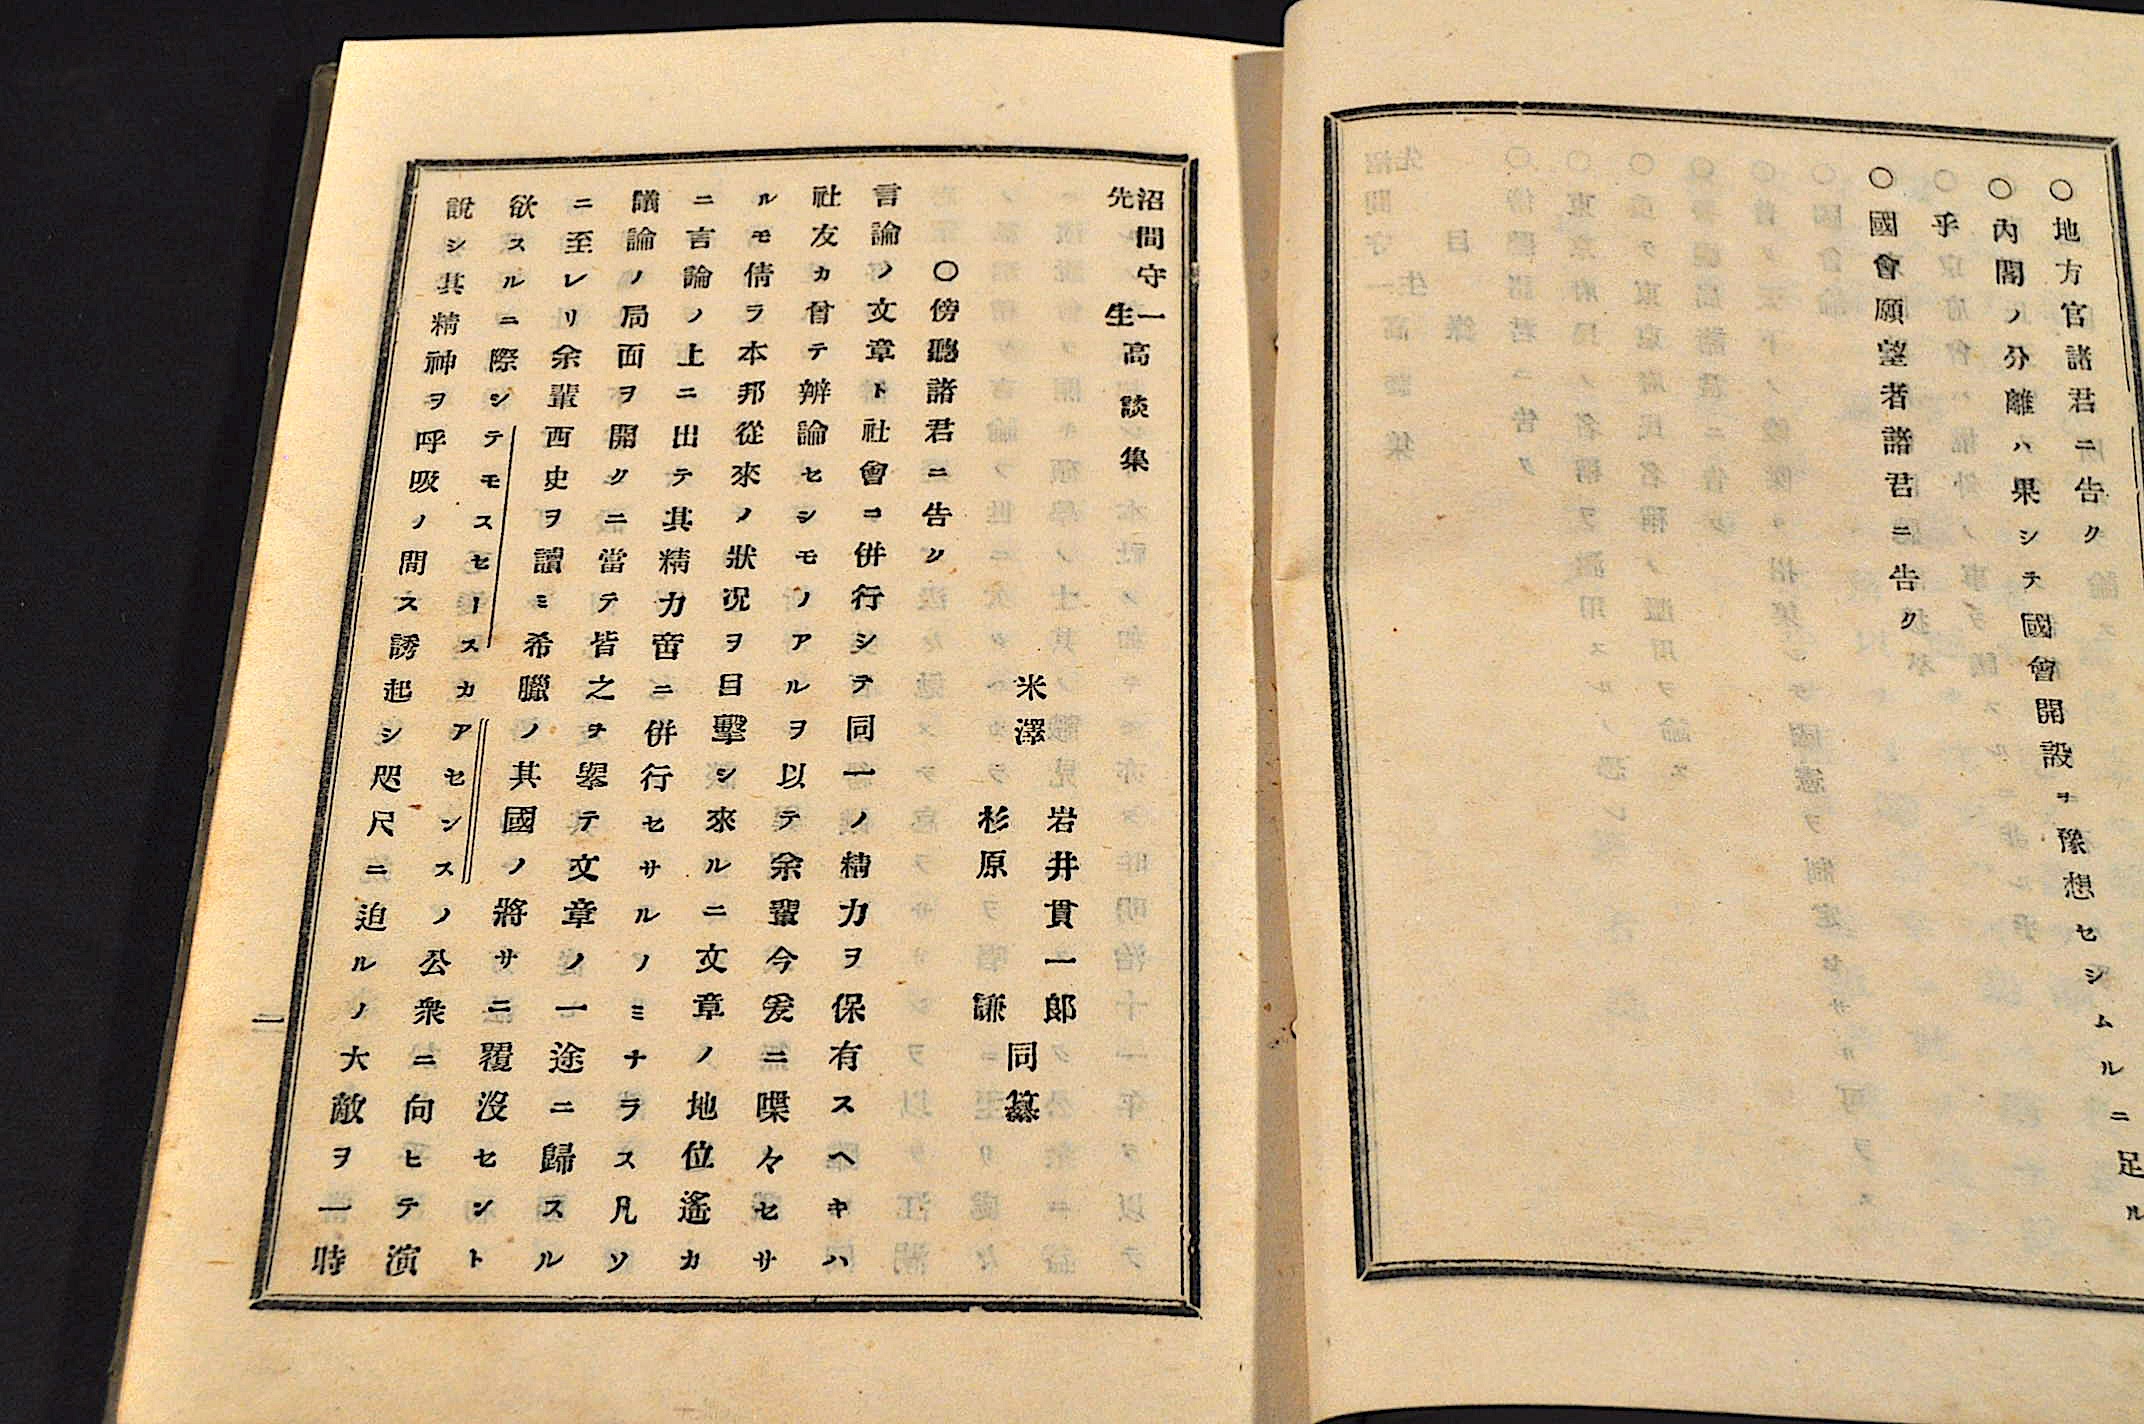 ○地方官諸君ニ告ク
○內閣ノ分離ハ果シテ國會開設ヲ豫想セシムルニ足ル
乎
○國會願望者諸君ニ告ク
沼間守一高談集
先生
米澤
岩井貫一郎
杉原謙
同纂
○傍聽諸君ニ告ク
言論ノ文章ト社會ニ併行シテ同一ノ精力ヲ保有スヘキハ
社友カ曾テ辨論セシモノアルヲ以テ余輩今爰ニ喋々セサ
ルモ倩ラ本邦從來ノ狀況ヲ目擊シ來ルニ文章ノ地位遙カ
ニ言論ノ上ニ出テ其精力啻ニ併行セサルノミナラス凡ソ
議論ノ局面ヲ開クニ當テ皆之ヲ擧テ文章ノ一途ニ歸スル
ニ至レリ余輩西史ヲ讀ミ希臘ノ其國ノ將サニ覆沒セント
欲スルニ際シテモスセーヌカアセンスノ公衆ニ向ヒテ演
說シ其精神ヲ呼吸ノ間ニ誘起シ咫尺ニ迫ルノ大敵ヲ一時